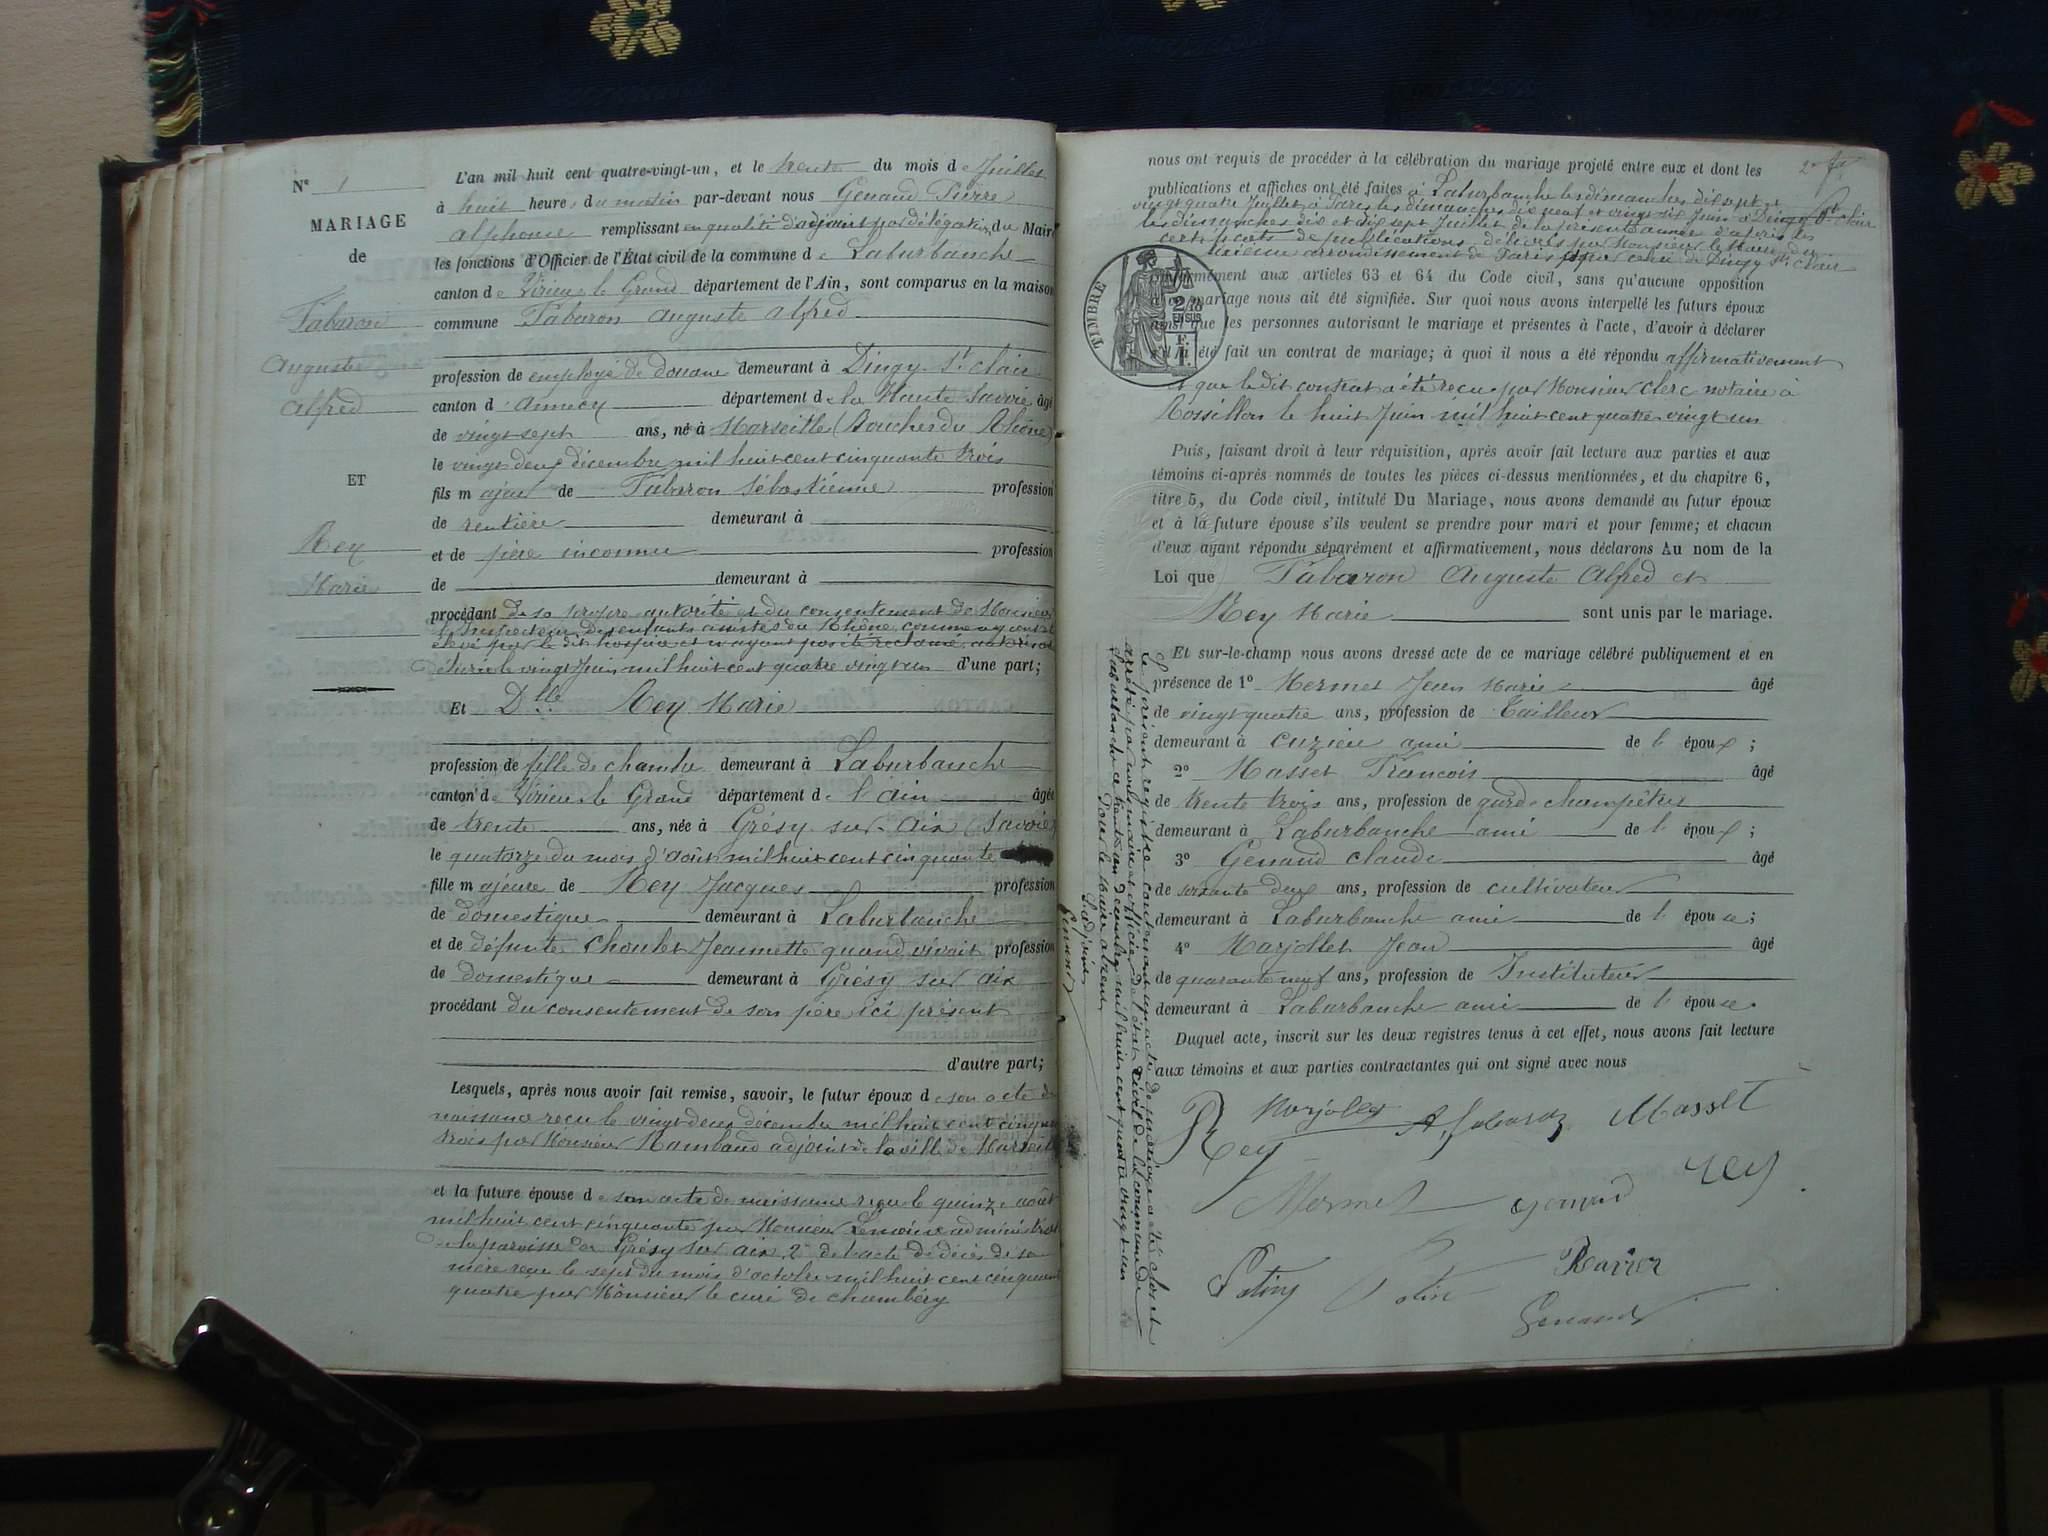 N° 1
MARIAGE
de
Tabaron
Auguste
Alfred
ET
Rey
Marie
L'an mil huit cent quatre-vingt-un, et le trente du mois de Juillet
à huit heures du matin par-devant nous Genand Pierre
alphonse remplissant en qualité d'adjoint par délégation du Maire
les fonctions d'Officier de l'État civil de la commune de Laburbanche
canton de Virieu le Grand département de l'Ain, sont comparus en la maison
commune Tabaron Auguste Alfred
profession de employé de douane demeurant à Dingy St Clair
canton d Annecy département de la Haute Savoie âgé
de vingt sept ans, né à Marseille (Bouches du Rhône)
le vingt deux décembre mil huit cent cinquante trois
fils majeur de Tabaron Sébastienne profession
de rentière demeurant à
et de père inconnu profession
de demeurant à
procédant de sa propre autorité et du consentement de Monsieur
l'Inspecteur Des enfants assistés du Rhône comme ayant été
élevé par le dit hospice et n'ayant pas été réclamé
le vingt Juin mil huit cent quatre vingt un d'une part;
Et Dlle Rey Marie
profession de fille de chambre demeurant à Laburbanche
canton de Virieu le Grand département de l'ain âgée
de trente ans, née à Grésy sur Aix (Savoie)
le quatorze du mois d'août mil huit cent cinquante
fille majeure de Rey Jacques profession
de domestique demeurant à Laburbanche
et de défunte Choulet Jeannette quand vivait profession
de domestique demeurant à Grésy sur aix
procédant du consentement de son père ici présent
d'autre part;
Lesquels, après nous avoir fait remise, savoir, le futur époux de son acte de
naissance reçu le vingt deux décembre mil huit cent cinquante
trois par Monsieur Rambaud adjoint de la ville de Marseille
et la future épouse de son acte de naissance reçu le quinze août
mil huit cent cinquante par Monsieur Lemoine
de la paroisse de Grésy sur aix 2° de l'acte de décès de sa
mère reçu le sept du mois d'octobre mil huit cent cinquante
quatre par Monsieur le curé de Chambéry
nous ont requis de procéder à la célébration du mariage projeté entre eux et dont les
publications et affiches ont été faites à Laburbanche les dimanches dix sept et
vingt quatre Juillet, à Paris les dimanches dix neuf et vingt six Juin à Dingy St Clair
les dimanches dix et dix sept Juillet de la présente année d'après les
certificats de publications délivrés par Monsieur le Maire du
arrondissement de Paris et par celui de Dingy St Clair
conformément aux articles 63 et 64 du Code civil, sans qu'aucune opposition
à ce mariage nous ait été signifiée. Sur quoi nous avons interpellé les futurs époux
ainsi que les personnes autorisant le mariage et présentes à l'acte, d'avoir à déclarer
s'il a été fait un contrat de mariage; à quoi il nous a été répondu affirmativement
et que le dit contrat a été reçu par Monsieur Clerc notaire à
Rossillon le huit Juin mil huit cent quatre vingt un
TIMBRE
Puis, faisant droit à leur réquisition, après avoir fait lecture aux parties et aux
témoins ci-après nommés de toutes les pièces ci-dessus mentionnées, et du chapitre 6,
titre 5, du Code civil, intitulé Du Mariage, nous avons demandé au futur époux
et à la future épouse s'ils veulent se prendre pour mari et pour femme; et chacun
d'eux ayant répondu séparément et affirmativement, nous déclarons Au nom de la
Loi que Tabaron Auguste Alfred et
Rey Marie sont unis par le mariage.
Et sur-le-champ nous avons dressé acte de ce mariage célébré publiquement et en
présence de 1° Mermet Jean Marie âgé
de vingt quatre ans, profession de Tailleur
demeurant à Cuzieu ami de l'époux;
2° Masset François âgé
de trente trois ans, profession de garde champêtre
demeurant à Laburbanche ami de l'époux;
3° Genand Claude âgé
de soixante deux ans, profession de cultivateur
demeurant à Laburbanche ami de l'épouse;
4° Marjollet Jean âgé
de quarante neuf ans, profession de Instituteur
demeurant à Laburbanche ami de l'épouse.
Duquel acte, inscrit sur les deux registres tenus à cet effet, nous avons fait lecture
aux témoins et aux parties contractantes qui ont signé avec nous
Rey Marjollet A. Tabaron Masset
Mermet Genand Rey
Ravier
Genand
Le présent registre contenant un acte de mariage a été clos et
arrêté par nous maire et officier de l'état civil de la commune de
Laburbanche ce trente un décembre mil huit cent quatre vingt un
Pour le Maire absent
L'adjoint
Genand